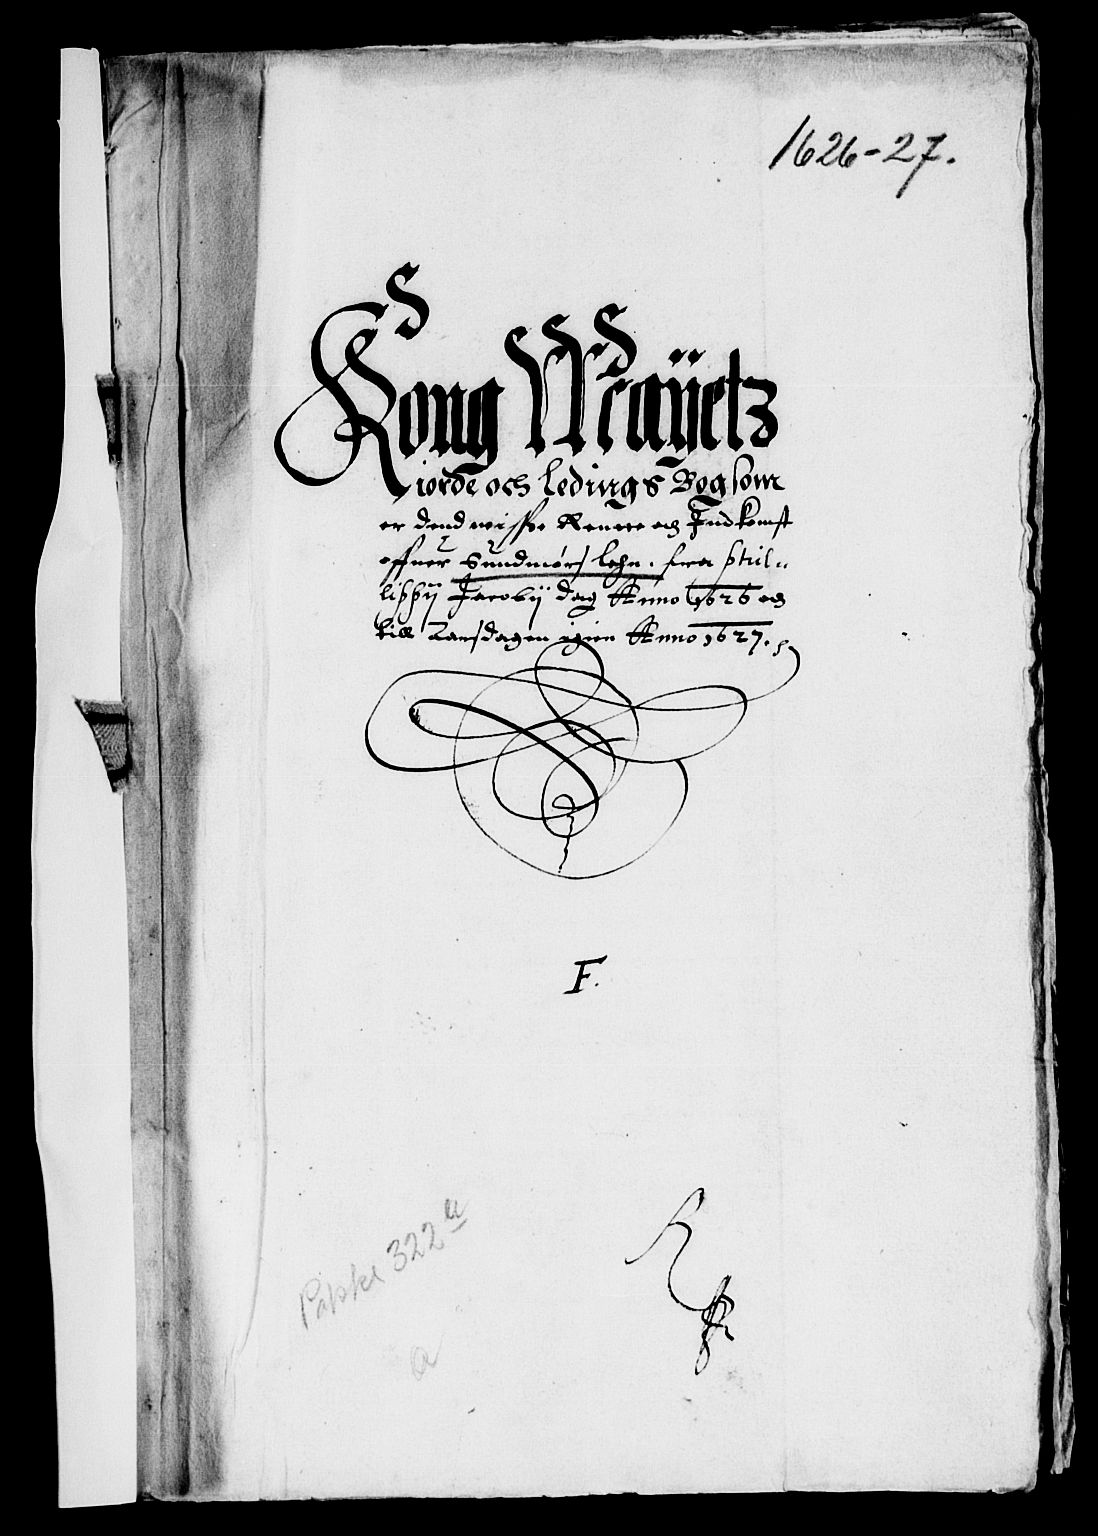 1626-27.
Kong Mayetz
iorde och ledings Bog som
er dend visse Rennte och Indkomst
offuer Sundmørs lehn. fra Phil=
lippij Jacobij dag Anno 1626 och
till Aarsdagen igien Anno 1627.
F.
Pakke 322
a